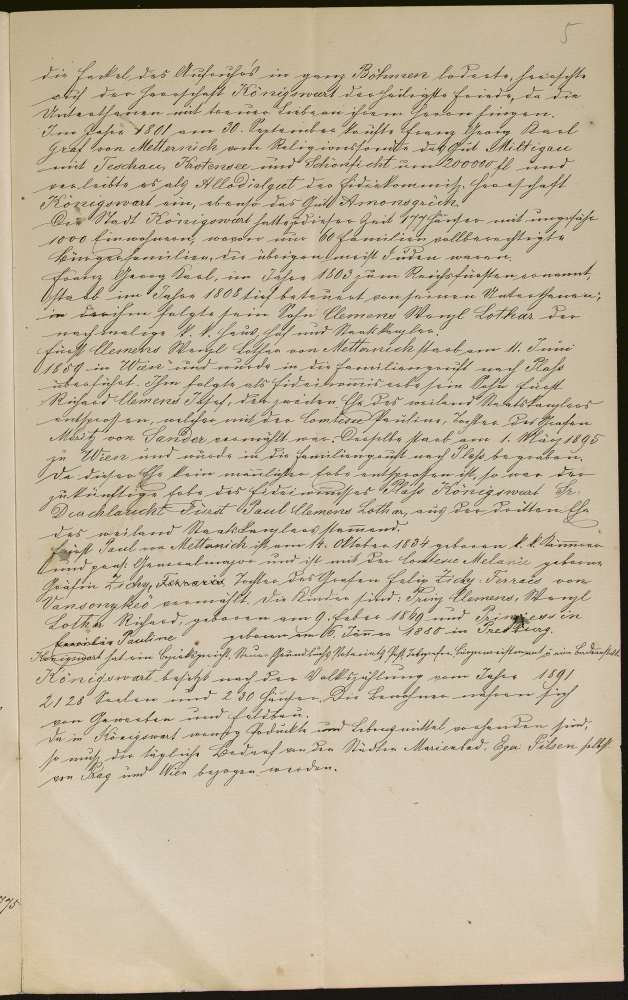 5
die Fackel des Aufruhrs in ganz Böhmen loderte, herrschte
auf der Herrschaft Königswart der heiligste Friede, da die
Unterthanen mit treuer Liebe an ihrem Herrn hingen.
Im Jahre 1801 am 30. September kaufte Franz Georg Karl
Graf von Metternich vom Religionsfonde das Gut Miltigau
mit Teschau, Krotensee und Schönficht um 200000 fl und
verleibte es als Allodialgut der Fideikommiß-Herrschaft
Königswart ein, ebenso das Gut Amonsgrün.
Die Stadt Königswart hatte zu dieser Zeit 177 Häuser mit ungefähr
1000 Einwohnern, wovon nur 60 Familien vollberechtigte
Bürgerfamilien, die übrigen meist Juden waren.
Franz Georg Karl, im Jahre 1803 zum Reichsfürsten ernannt,
starb im Jahre 1808 tief betrauert von seinen Unterthanen;
ihm folgte sein Sohn Clemens Wenzl Lothar der
nachmalige k. k. Haus, Hof und Staatskanzler.
Fürst Clemens Wenzl Lothar von Metternich starb am 11. Juni
1859 in Wien und wurde in die Familiengruft nach Plaß
überführt. Ihm folgte als Fideicomisserbe sein Sohn Fürst
Richard Clemens Josef, der zweiten Ehe des weiland Staatskanzlers
entsprossen, welcher mit der Comtesse Pauline, Tochter des Grafen
Moritz von Sandor vermählt war. Derselbe starb am 1. März 1895
zu Wien und wurde in die Familiengruft nach Plaß begraben.
Da dieser Ehe kein männlicher Erbe entsprossen ist, so war der
zukünftige Erbe des Fideicomisses Plaß Königswart Sr.
Durchlaucht Fürst Paul Clemens Lothar, aus der dritten Ehe
des weiland Staatskanzlers stammend.
Fürst Paul von Metternich ist am 14. Oktober 1834 geboren k. k. Kämmerer
und pens. Generalmajor und ist mit der Comtesse Melanie geborene
Gräfin Zichy, Tochter des Grafen Felix Zichy-Ferraris von
Vansonykeö vermählt. Die Kinder sind: Prinz Clemens, Wenzl
Lothar Richard, geboren am 9. Feber 1869 und Prinzessin
Pauline geboren am 6. Jänner 1880 in Preßburg.
Königswart hat ein Bezirksgericht, Steuer, Grundbuchs, Notariats, Post, Telegrafen, Bürgermeisteramt u. eine
Königswart besitzt nach der Volkszählung vom Jahre 1891
2128 Seelen und 230 Häuser. Die Bewohner nähren sich
von Gewerben und Feldbau.
Da in Königswart wenig Produkte und Lebensmittel vorhanden sind,
so muß der tägliche Bedarf von den Städten Marienbad, Eger, Pilsen, selbst
von Prag und Wien bezogen werden.